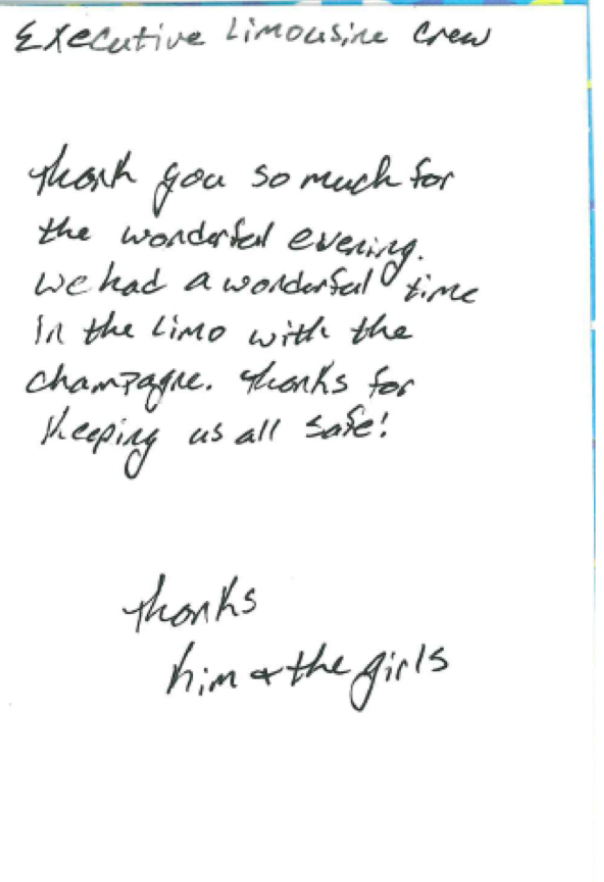 Executive Limousine Crew
Thank you so much for
the wonderful evening.
We had a wonderful time
in the Limo with the
champagne. Thanks for
Keeping us all safe!
Thanks
Kim & the girls